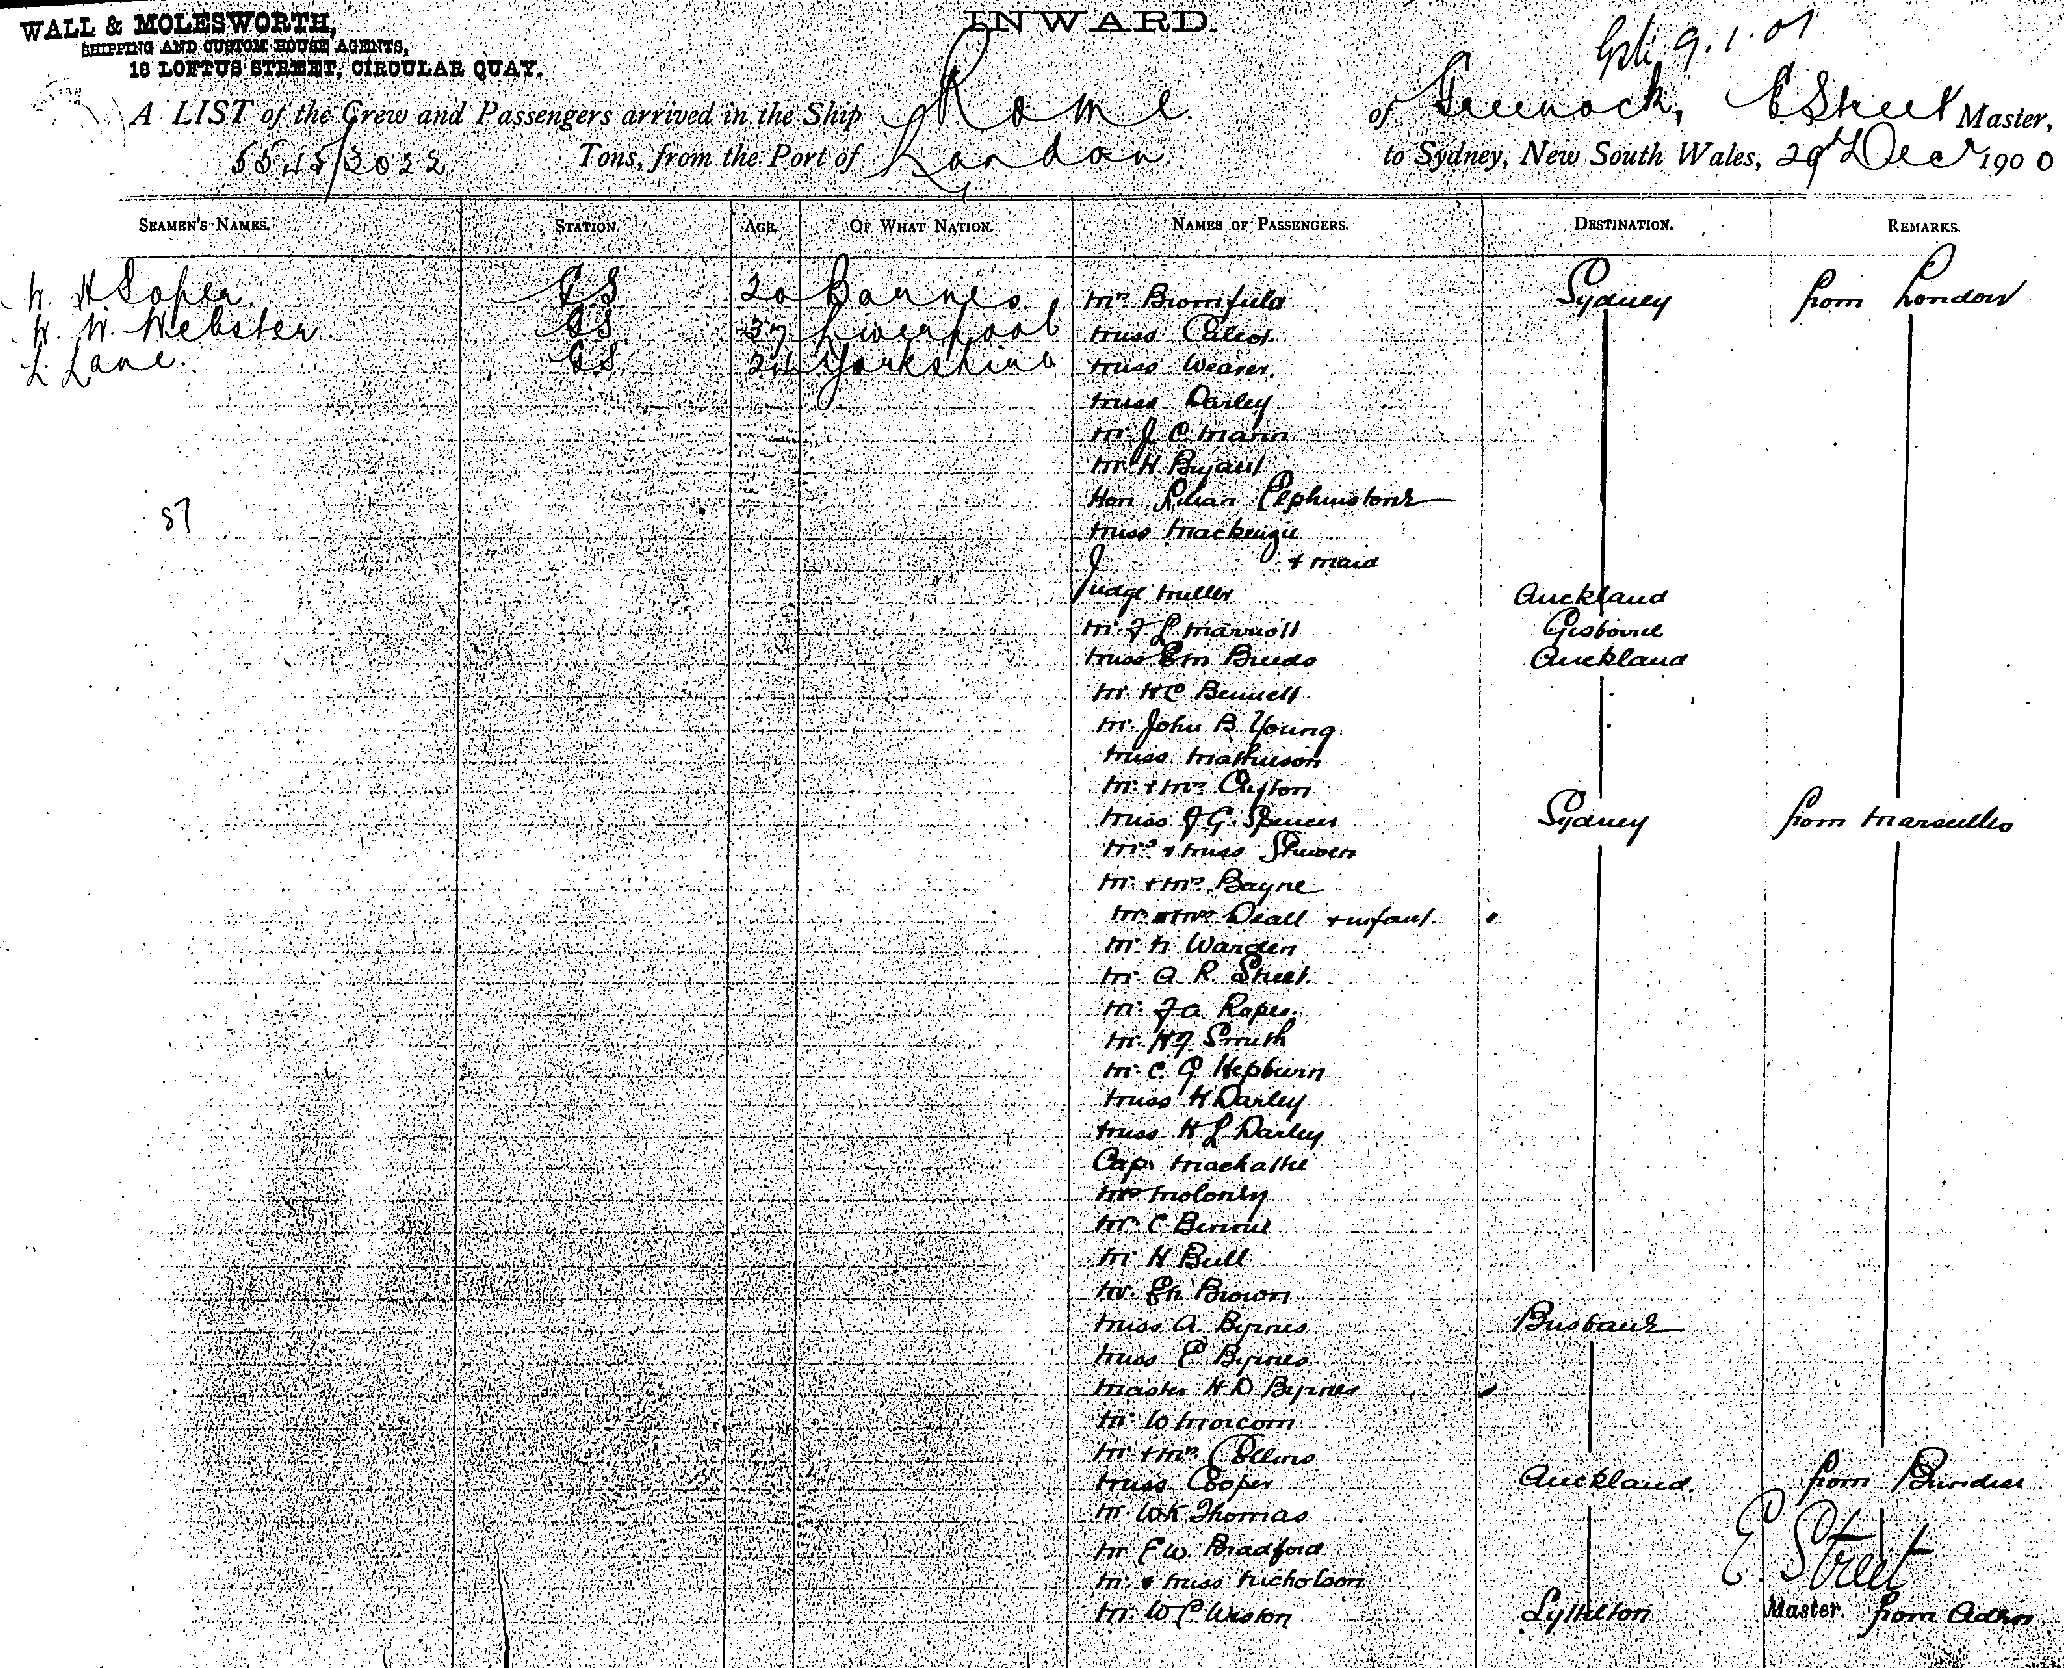 WALL & MOLESWORTH,
SHIPPING AND CUSTOM HOUSE AGENTS,
18 LOFTUS STREET, CIRCULAR QUAY.
INWARD.
9.1.01
A LIST of the Crew and Passengers arrived in the Ship Rome of Greenock, E Street Master,
Tons, from the Port of London to Sydney, New South Wales, 29th Decr 1900
SEAMEN'S NAMES. STATION. AGE. OF WHAT NATION. NAMES OF PASSENGERS. DESTINATION. REMARKS.
W. H Soper. GS 20 Barnes Mrs Bromfield Sydney from London
W. W. Webster GS 37 Liverpool Miss
L. Lane. GS Yorkshire Miss Weaver.
Miss Darley
Mr J C Mann
Mr H Bryant
Hon Lilian Elphinstone
Miss Mackenzie
& maid
Judge Miller Auckland
Mr F L Marriott Gisborne
Miss E M Breeds Auckland
Mr H C Bennett
Mr John B Young
Miss Mathieson
Mr & Mrs Clifton
Miss J G. Spencer Sydney from Marseilles
Mrs & Miss
Mr & Mrs Bayne
Mr & Mrs Deall & infant.
Mr N Warden
Mr A R Street.
Mr F A Roper.
Mr H J Smith
Mr C G Hepburn
Miss H Darley
Miss H L Darley
Cap.
Mrs Moloney
Mr C Binnie
Mr H Bull
Mr Brown
Miss A Byrnes Brisbane
Miss E Byrnes
Master H D Byrnes
Mr W Morcom
Mr & Mrs Collins
Miss Cooper Auckland from Brindisi
Mr W K Thomas
Mr E W Bradford E. Street
Mr & Miss Nicholson
Mr W C Weston Lyttelton Master. from Aden
57